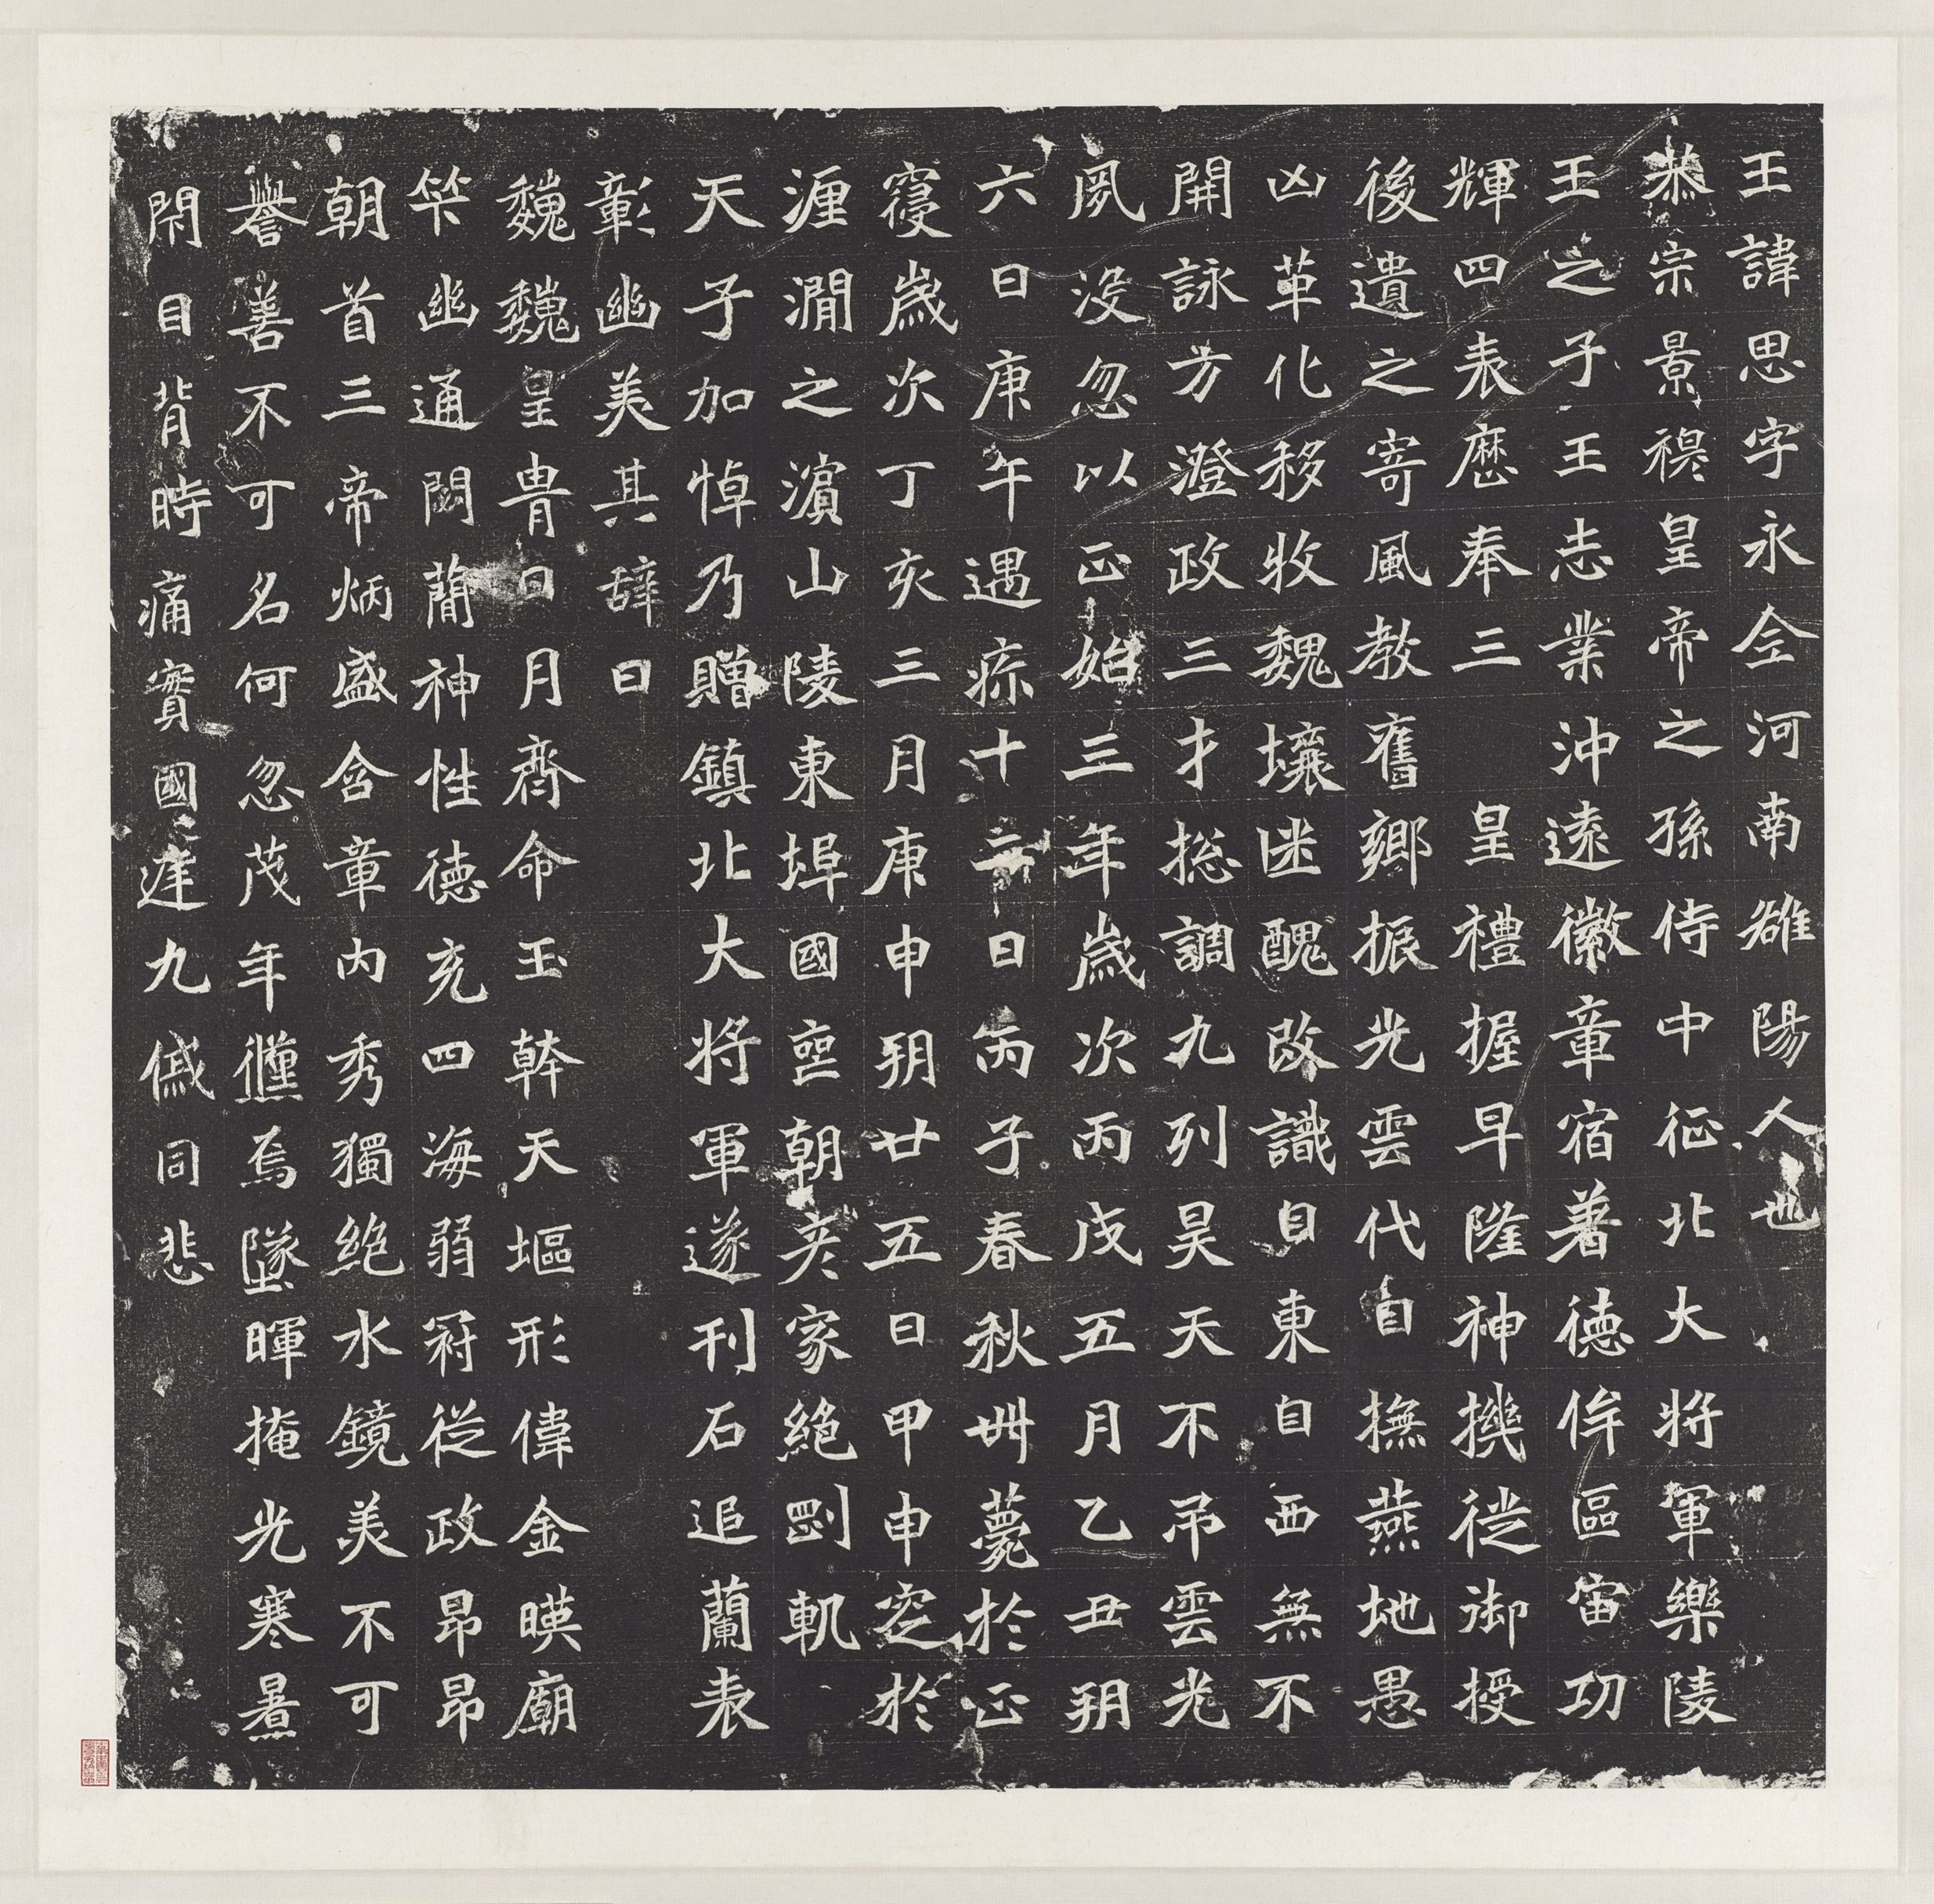 王諱思字永全河南雒陽人也
恭宗景穆皇帝之孫侍中征北大將軍樂陵
王之子王志業沖遠徽章宿著德侔區宙功
輝四表歷奉三皇禮握早隆神機徙御授
後遺之寄風教舊鄉振光雲代自撫燕地愚
凶革化移牧魏壤迷醜改識自東自西無不
開詠方澄政三才揔調九列昊天不弔雲光
夙没忽以正始三年歲次丙戌五月乙丑朔
六日庚午遇疹十二日丙子春秋卌薨於正
寢歲次丁亥三月庚申朔廿五日甲申窆於
湹澗之濵山陵東埠國喪朝彦家絶剛軌
天子加悼乃贈鎮北大將軍遂刊石追蘭表
彰幽美其辞曰
巍巍皇胄日月齊命玉幹天塸形偉金暎廟
筞幽通閟蘭神性德充四海弱冠從政昂昂
朝首三帝炳盛含章内秀獨絶水鏡美不可
譽善不可名何忽茂年殲焉墜暉掩光寒暑
閇目背時痛實國逹九慽同悲